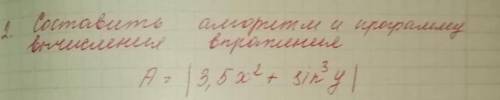 2. Составить алгоритм и программу
вычисления выражения
A = |3,5x² + sin³y|